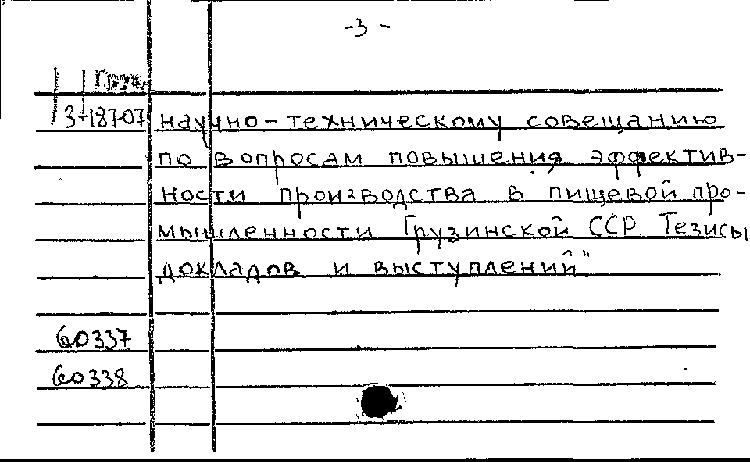 -3-
Груз
3-18707 научно-техническому совещанию
по вопросам повышения эффектив-
ности производства в пищевой про-
мышленности Грузинской ССР Тезисы
докладов и выступлений"
60337
60338